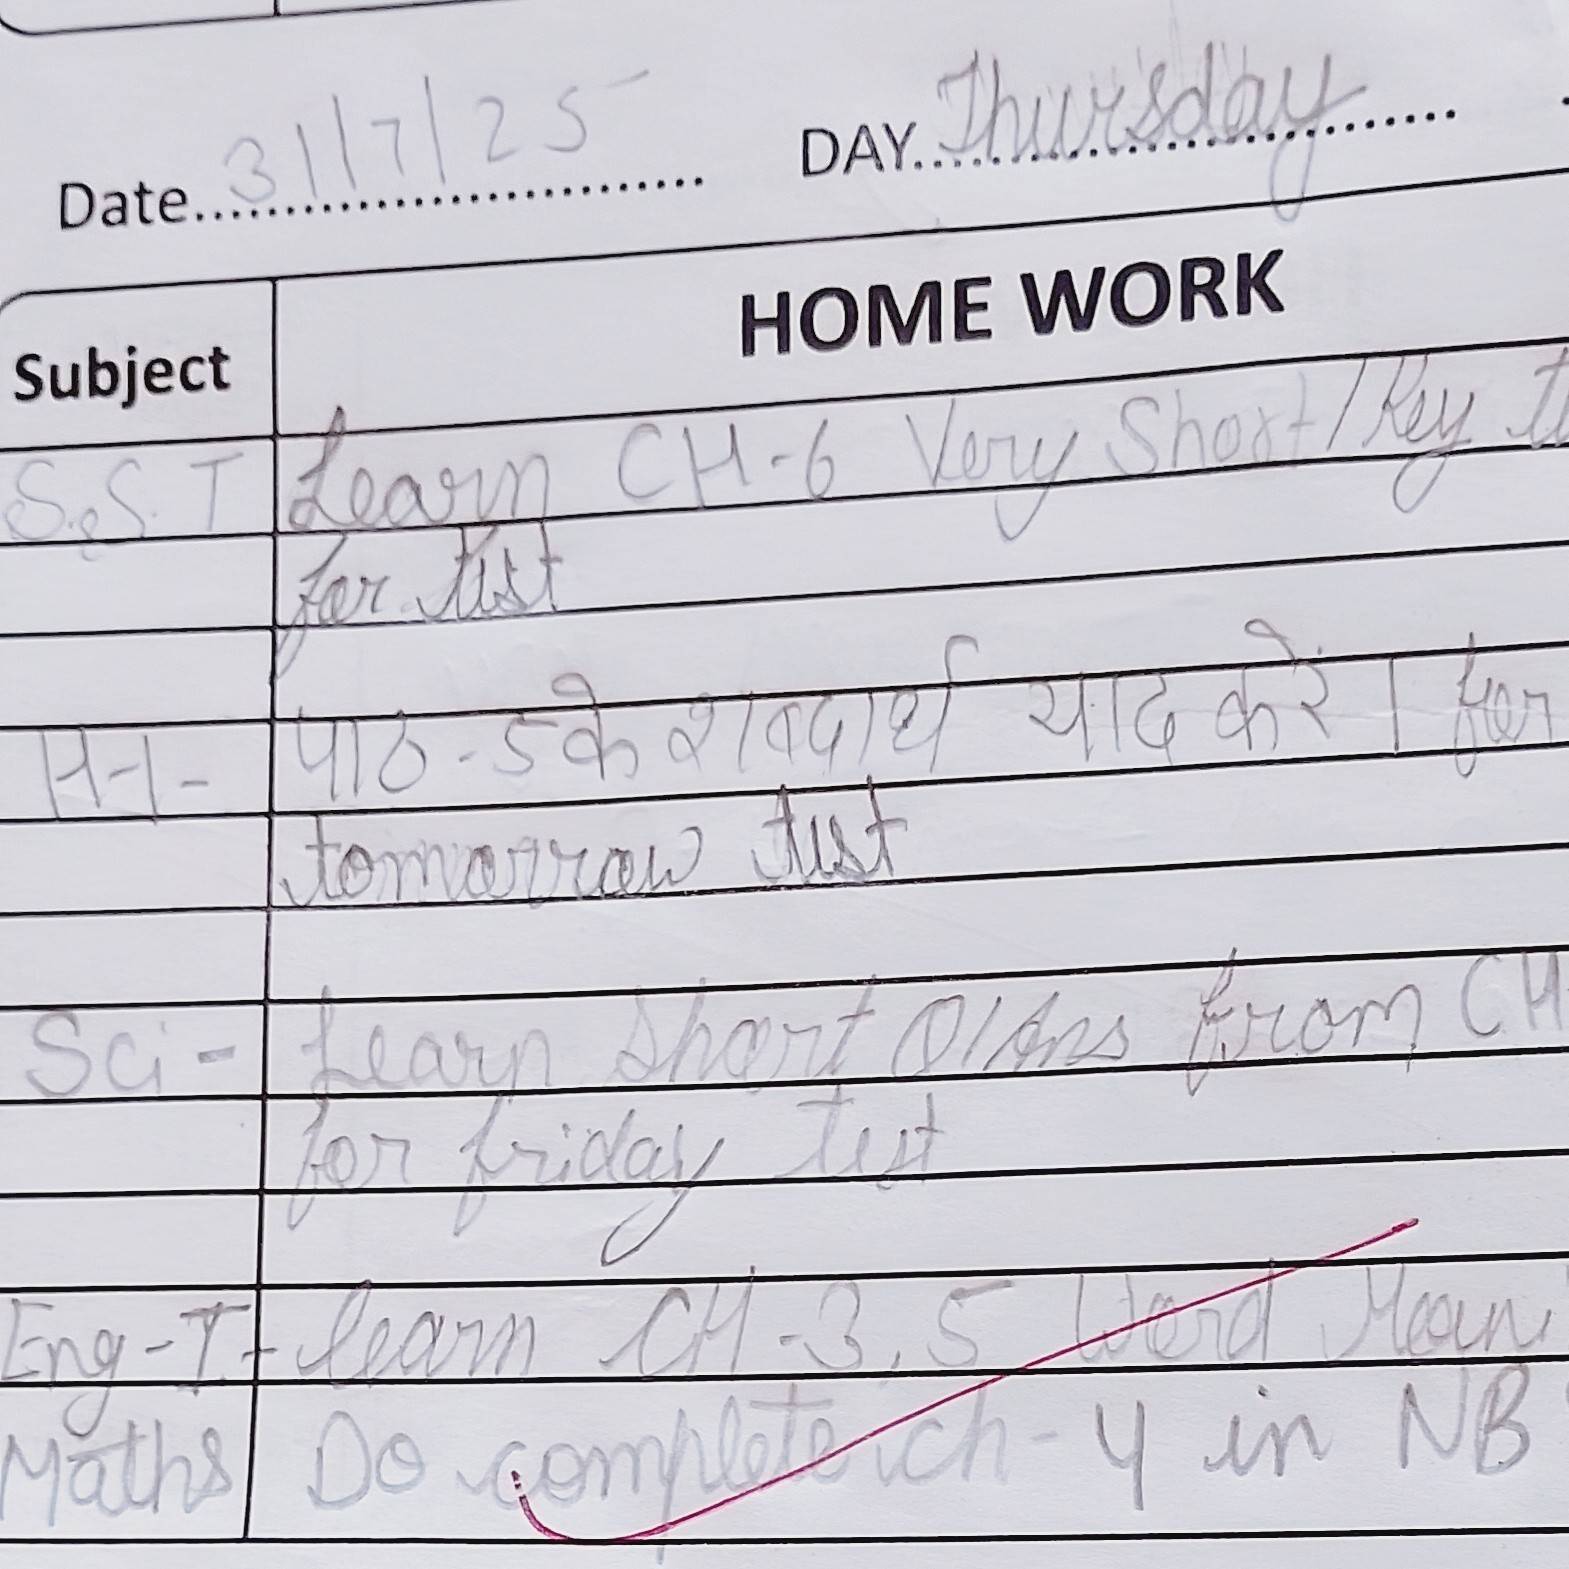 Date 31/7/25 DAY Thursday
Subject HOME WORK
S.S.T Learn CH-6 Very Short/Key
for test
H-1- पाठ-5 के शब्दार्थ याद करें | for
tomorrow test
Sci- Learn Short Q/Ans from CH
for friday test
Eng-I- learn CH-3,5 Word Mean
Maths Do complete ch-4 in NB